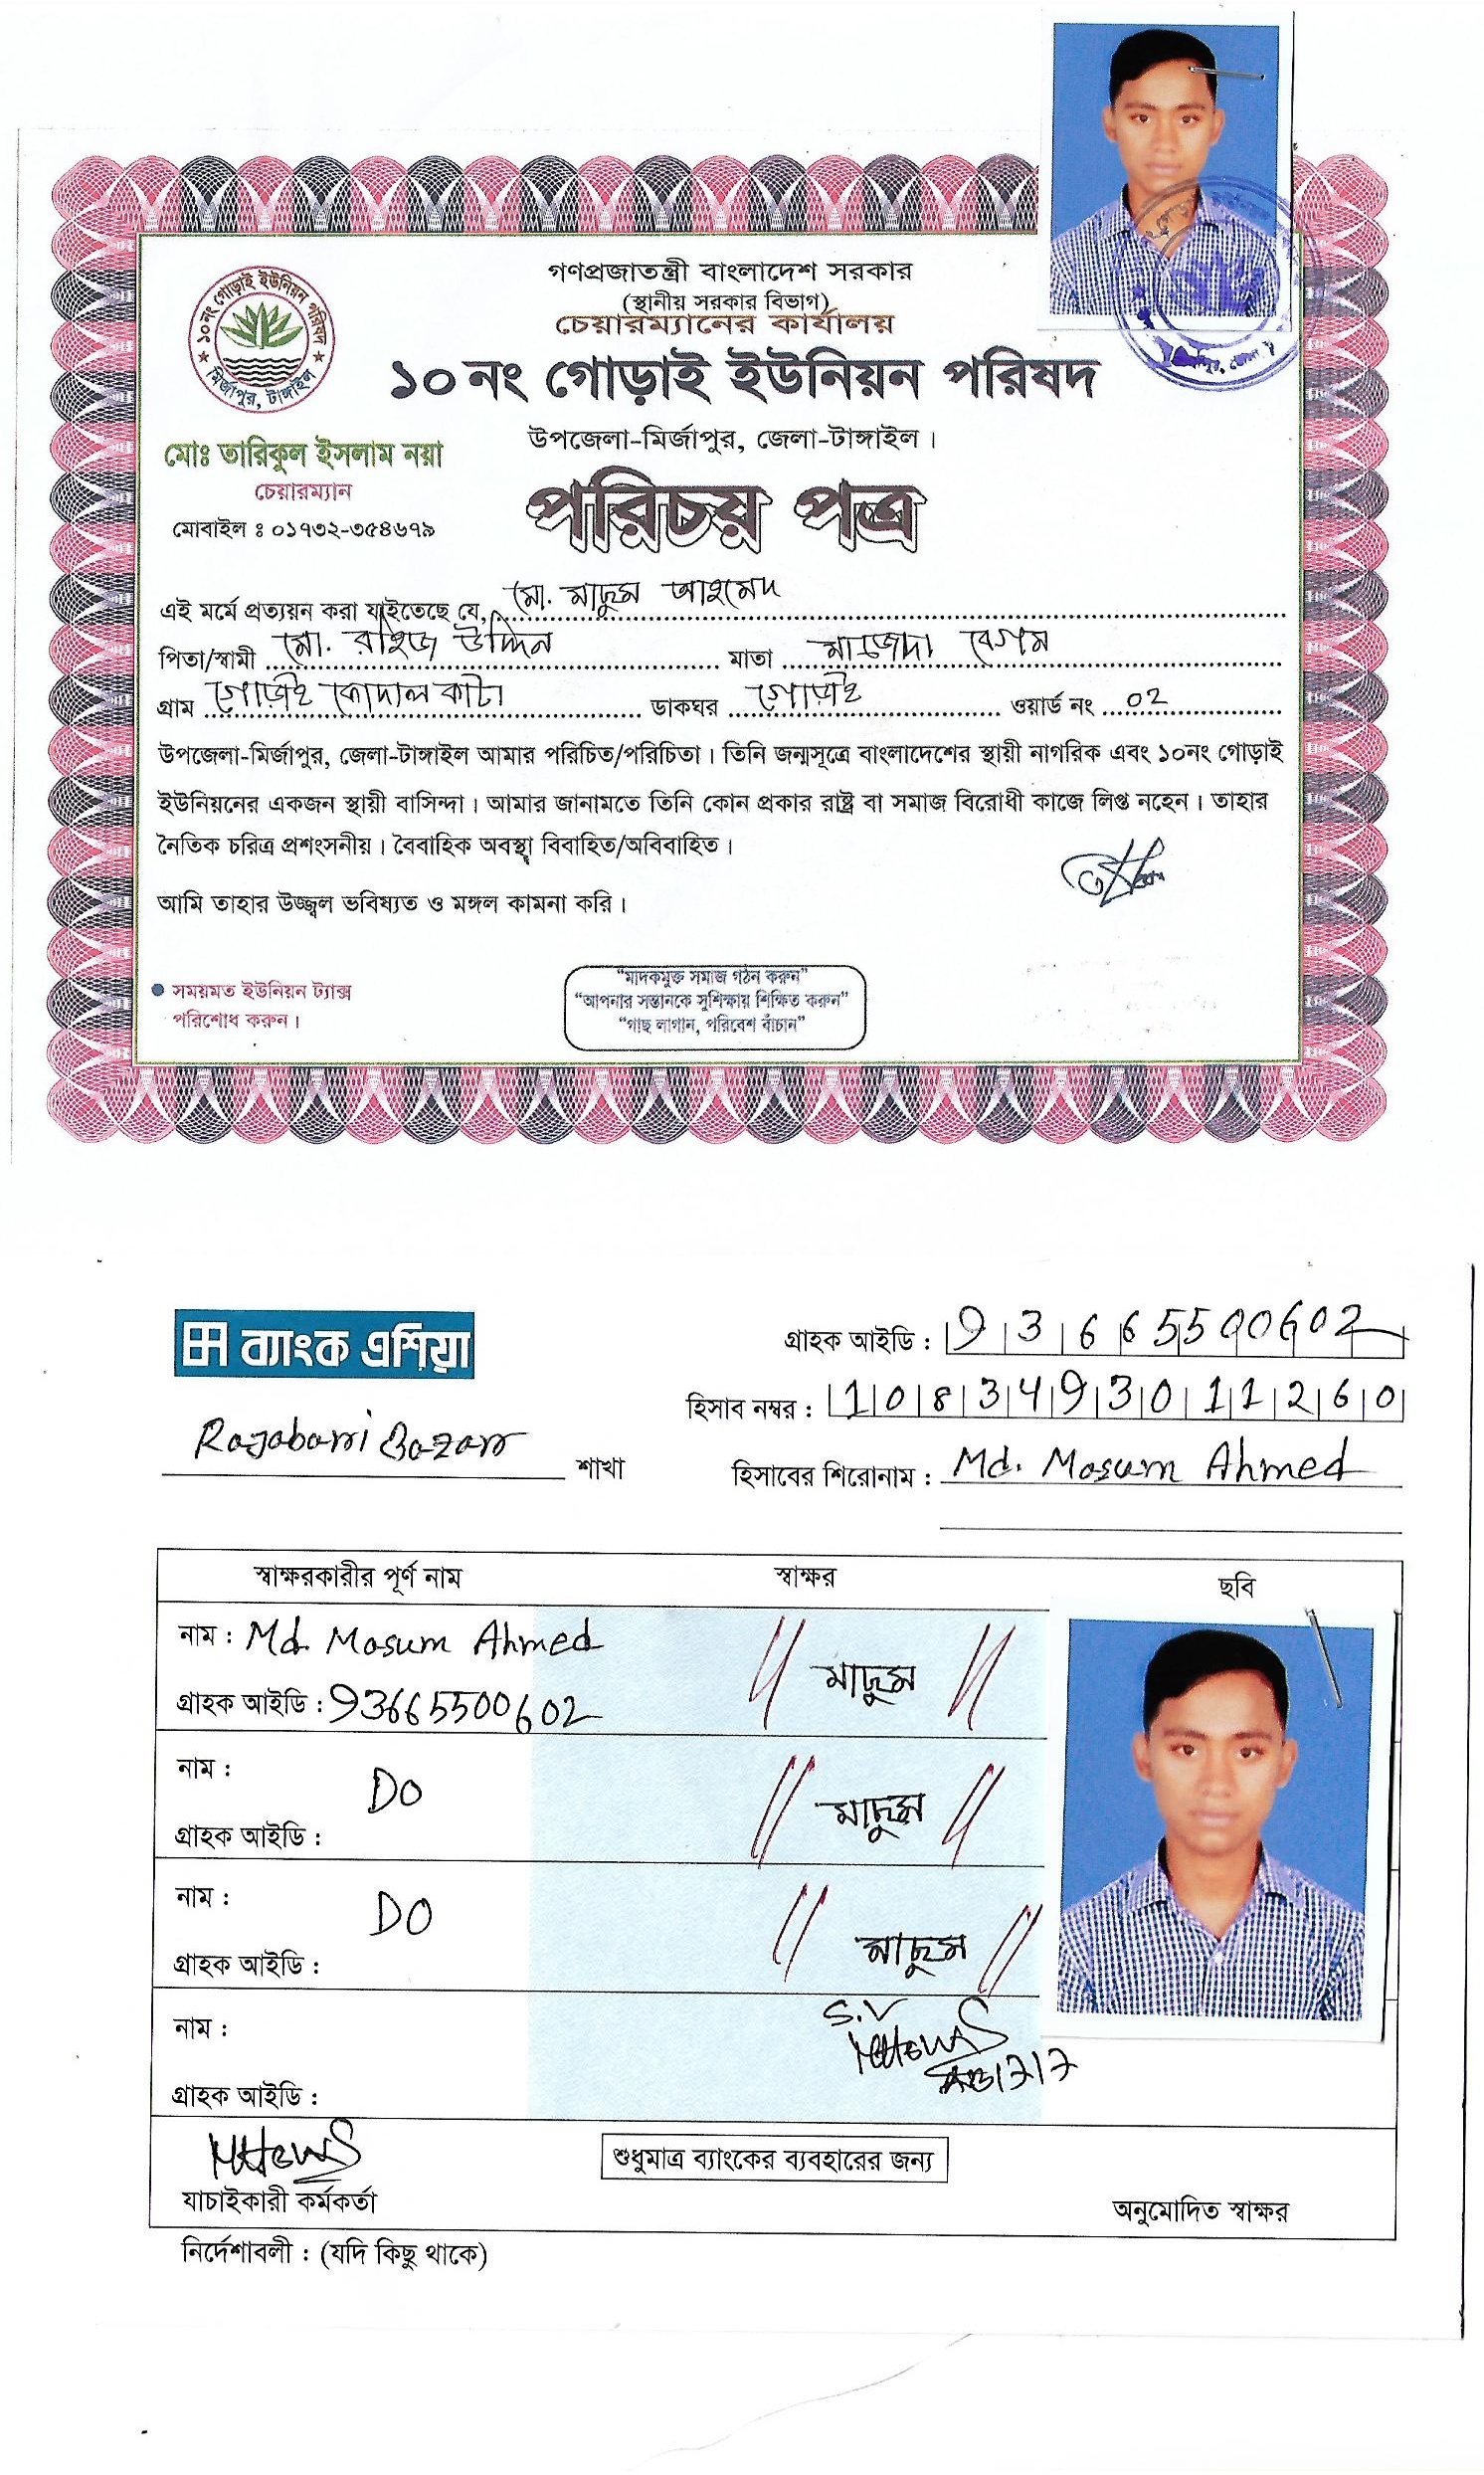 গণপ্রজাতন্ত্রী বাংলাদেশ সরকার
(স্থানীয় সরকার বিভাগ)
চেয়ারম্যানের কার্যালয়
১০নং গোড়াই ইউনিয়ন পরিষদ
উপজেলা-মির্জাপুর, জেলা-টাঙ্গাইল।
১০নং গোড়াই ইউনিয়ন পরিষদ
মির্জাপুর, টাঙ্গাইল
মোঃ তারিকুল ইসলাম নয়া
চেয়ারম্যান
মোবাইল ঃ ০১৭৩২-৩৫৪৬৭৯
পরিচয় পত্র
এই মর্মে প্রত্যয়ন করা যাইতেছে যে, মো. মাছুম আহমেদ
পিতা/স্বামী মো. রইজ উদ্দিন মাতা মাজেদা বেগম
গ্রাম গোড়াই কোদালকাটা ডাকঘর গোড়াই ওয়ার্ড নং ০২
উপজেলা-মির্জাপুর, জেলা-টাঙ্গাইল আমার পরিচিত/পরিচিতা। তিনি জন্মসূত্রে বাংলাদেশের স্থায়ী নাগরিক এবং ১০নং গোড়াই
ইউনিয়নের একজন স্থায়ী বাসিন্দা। আমার জানামতে তিনি কোন প্রকার রাষ্ট্র বা সমাজ বিরোধী কাজে লিপ্ত নহেন। তাহার
নৈতিক চরিত্র প্রশংসনীয়। বৈবাহিক অবস্থা বিবাহিত/অবিবাহিত।
আমি তাহার উজ্জ্বল ভবিষ্যত ও মঙ্গল কামনা করি।
সময়মত ইউনিয়ন ট্যাক্স
পরিশোধ করুন।
“মাদকমুক্ত সমাজ গঠন করুন”
“আপনার সন্তানকে সুশিক্ষায় শিক্ষিত করুন”
“গাছ লাগান, পরিবেশ বাঁচান”
ব্যাংক এশিয়া
গ্রাহক আইডি : 93665500602
হিসাব নম্বর : 1083493011260
Rajabari Bazar শাখা
হিসাবের শিরোনাম : Md. Masum Ahmed
স্বাক্ষরকারীর পূর্ণ নাম স্বাক্ষর ছবি
নাম : Md. Masum Ahmed মাছুম
গ্রাহক আইডি : 93665500602
নাম : DO মাছুম
গ্রাহক আইডি :
নাম : DO মাছুম
গ্রাহক আইডি :
S.V
নাম :
গ্রাহক আইডি :
শুধুমাত্র ব্যাংকের ব্যবহারের জন্য
যাচাইকারী কর্মকর্তা অনুমোদিত স্বাক্ষর
নির্দেশাবলী : (যদি কিছু থাকে)